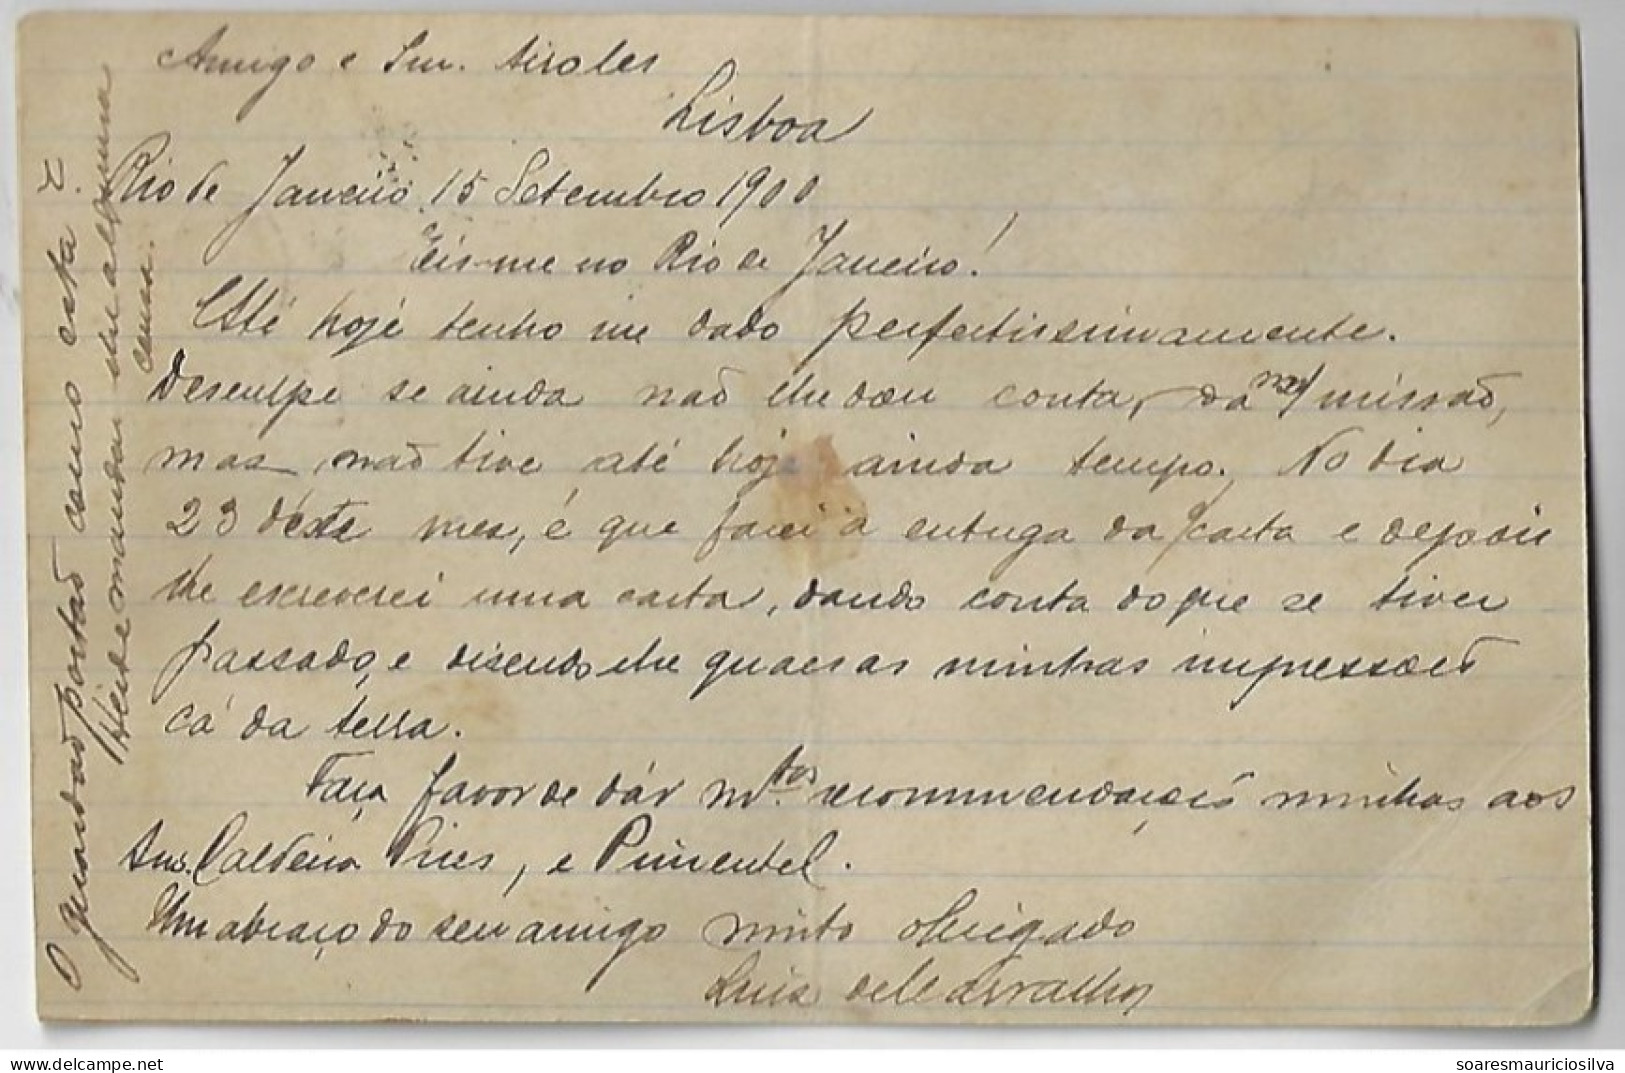 Amigo e Snr. Airoles
Lisboa
Rio de Janeiro 15 Setembro 1900
Eis-me no Rio de Janeiro!
Até hoje tenho me dado perfeitissimamente.
Desculpe se ainda não lhe dou conta, da missão,
mas não tive até hoje ainda tempo. No dia
23 déste mez, é que farei a entrega da carta e depois
lhe escreverei uma carta, dando conta do que se tiver
passado, e disendo lhe quaes as minhas impressões
cá da terra.
Faça favor de dár mtas recommendações minhas aos
Snrs. Caldeira Pires, e Pimentel.
Um abraço do seu amigo muito obrigado
Luis de Carvalho
O quando postão como esta é.
Heide mandar lhe alguma
cousa.
https://www.delcampe.net
soaresmauriciosilva